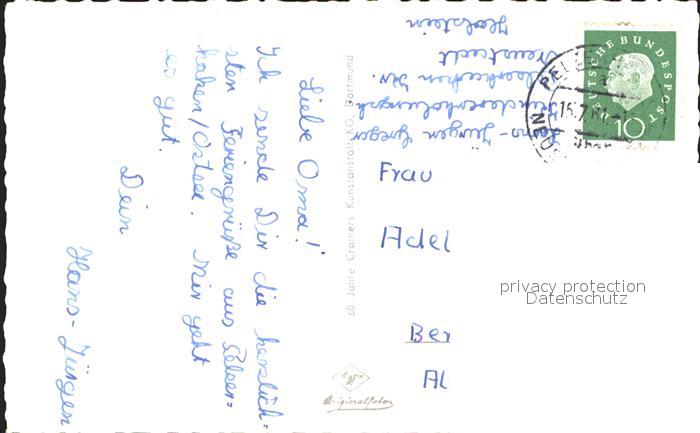 Liebe Oma!
Ich sende Dir die herzlich-
sten Feriengrüße aus Pelzer-
haken/Ostsee. Mir geht
es gut.
Dein
Hans-Jürgen
60 Jahre Cramers Kunstanstalt KG, Dortmund
Hans-Jürgen
Neustadt
Holstein
DEUTSCHE BUNDESPOST
10
15.7.61
Frau
Adel
Ber
Al
privacy protection
Datenschutz
Agfa
Originalfoto